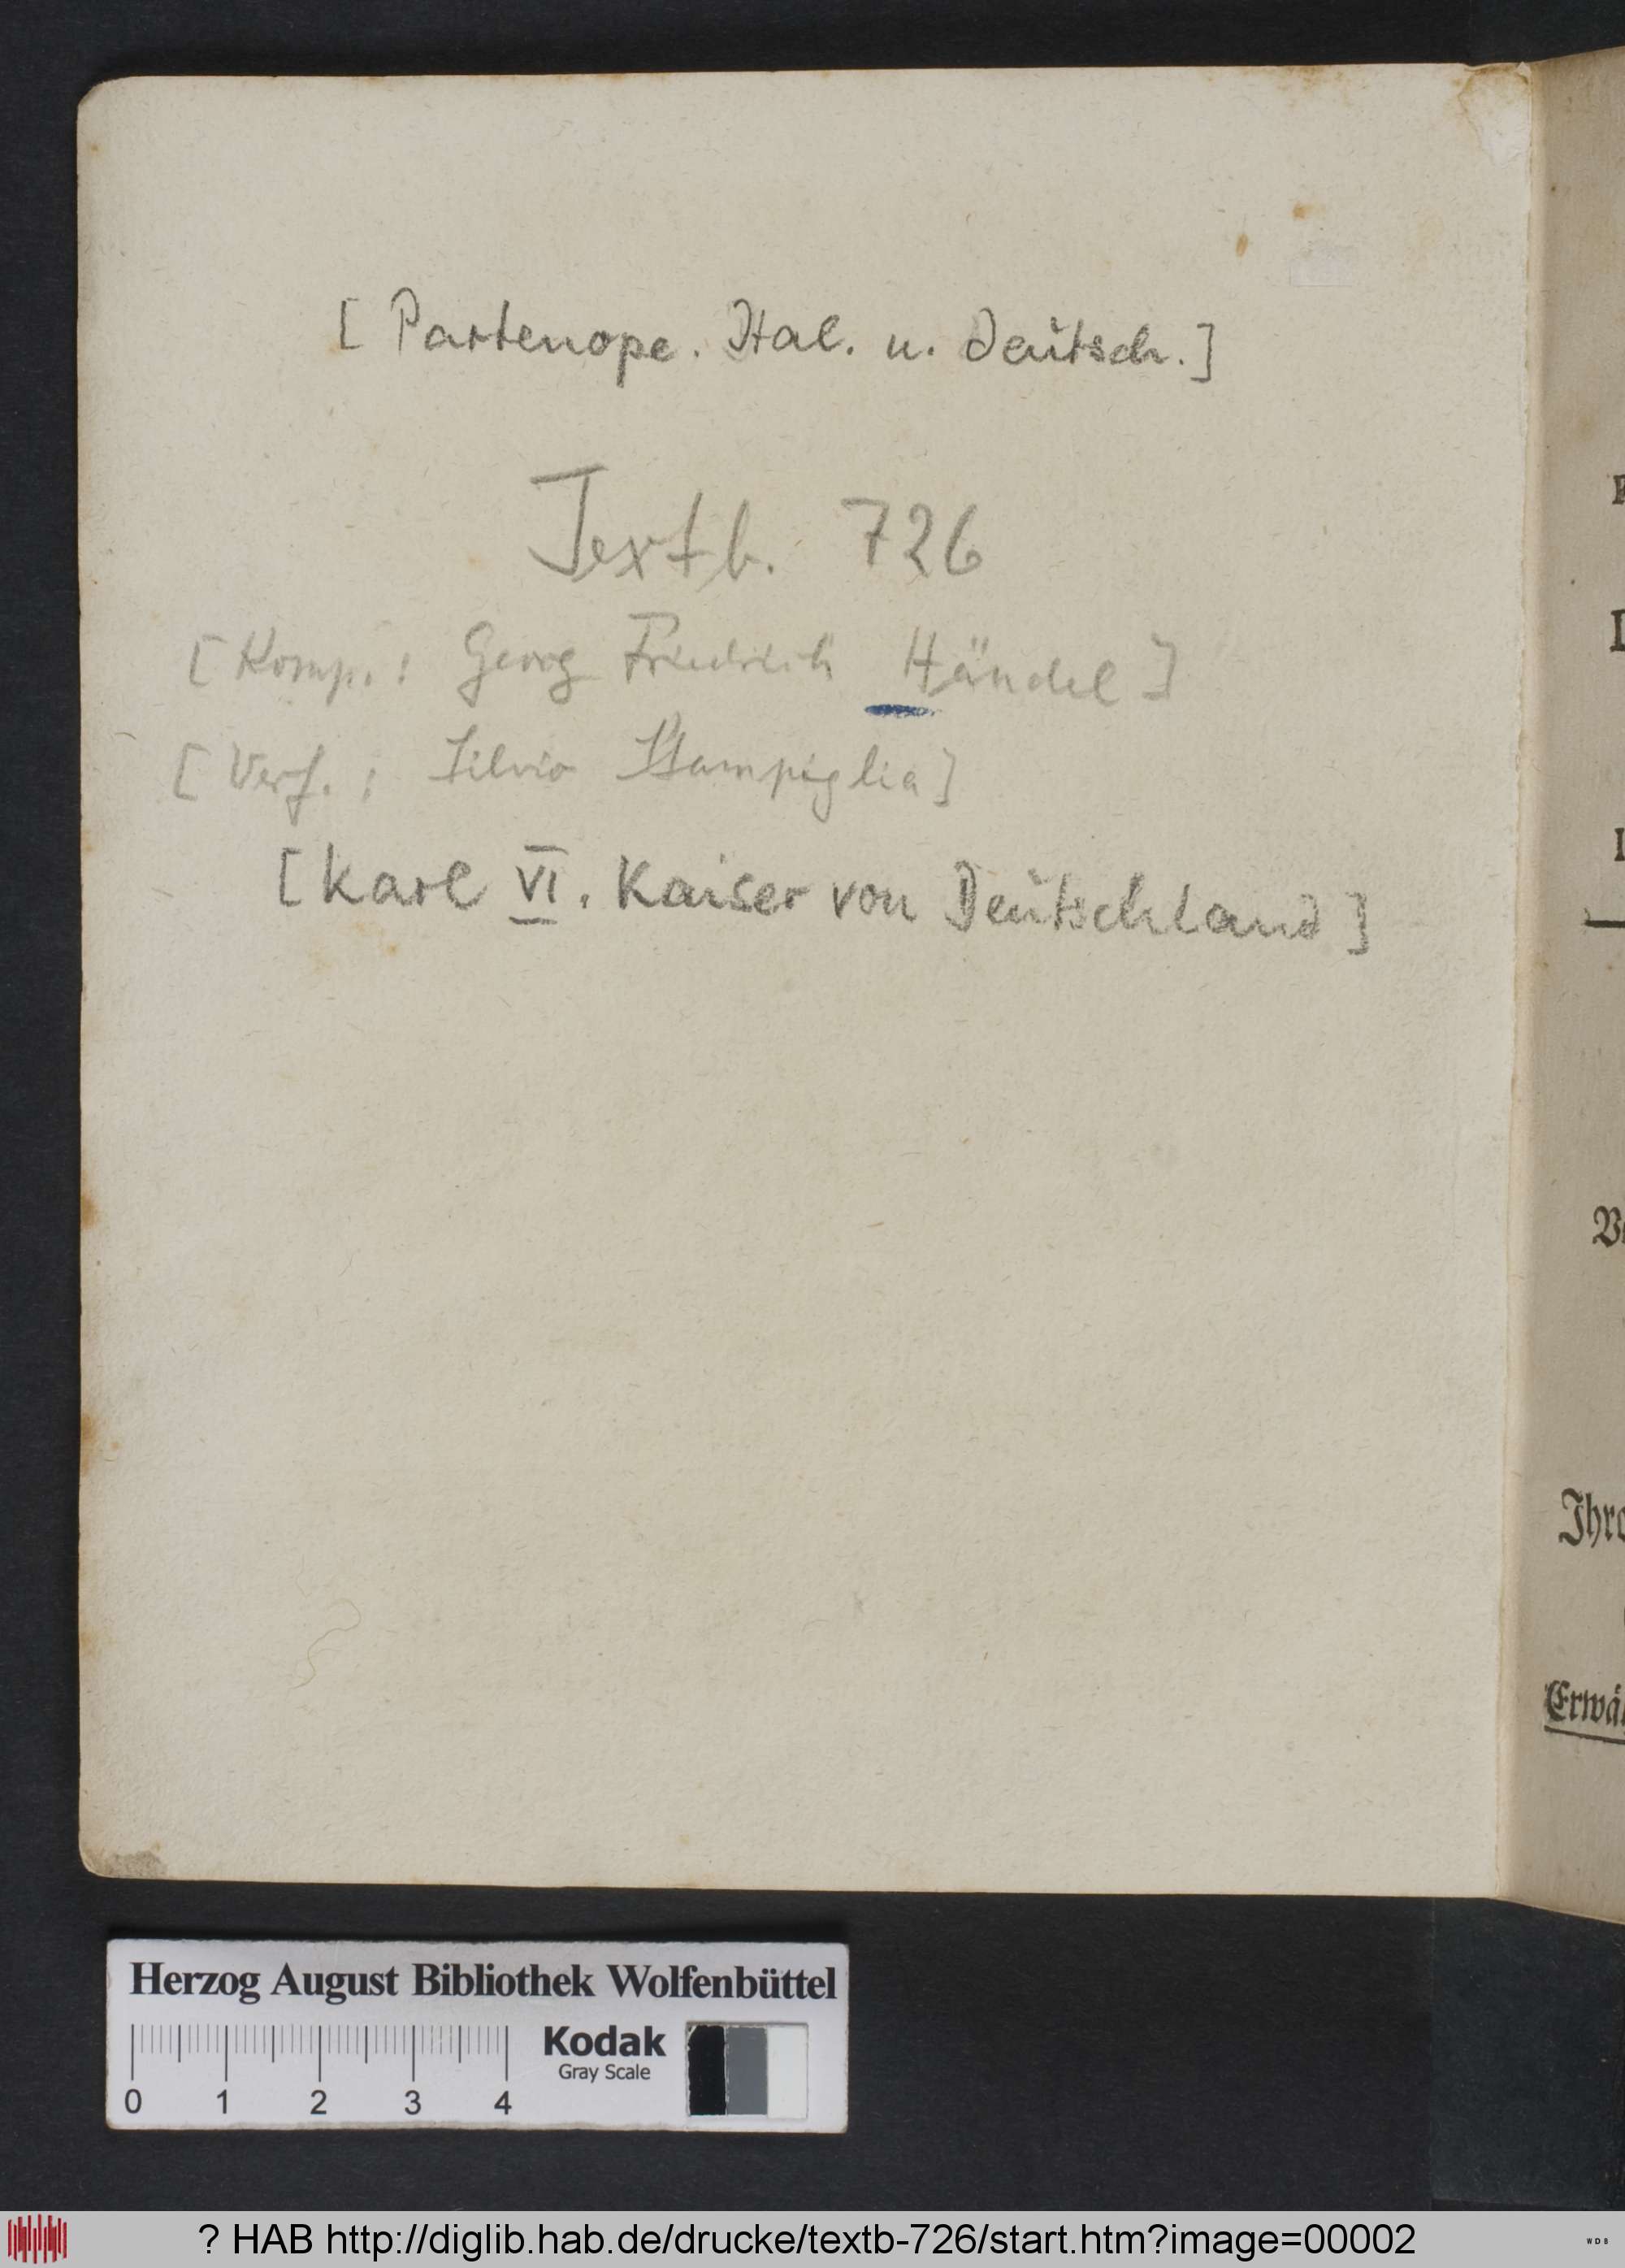 [ Partenope. Ital. u. deutsch.]
Textb. 726
[ Komp.: Georg Friedrich Händel ]
[ Verf.: Silvio Stampiglia]
[Karl VI. Kaiser von Deutschland]
Ihre
Erwä
Herzog August Bibliothek Wolfenbüttel
Kodak
Gray Scale
0 1 2 3 4
? HAB http://diglib.hab.de/drucke/textb-726/start.htm?image=00002
WDB